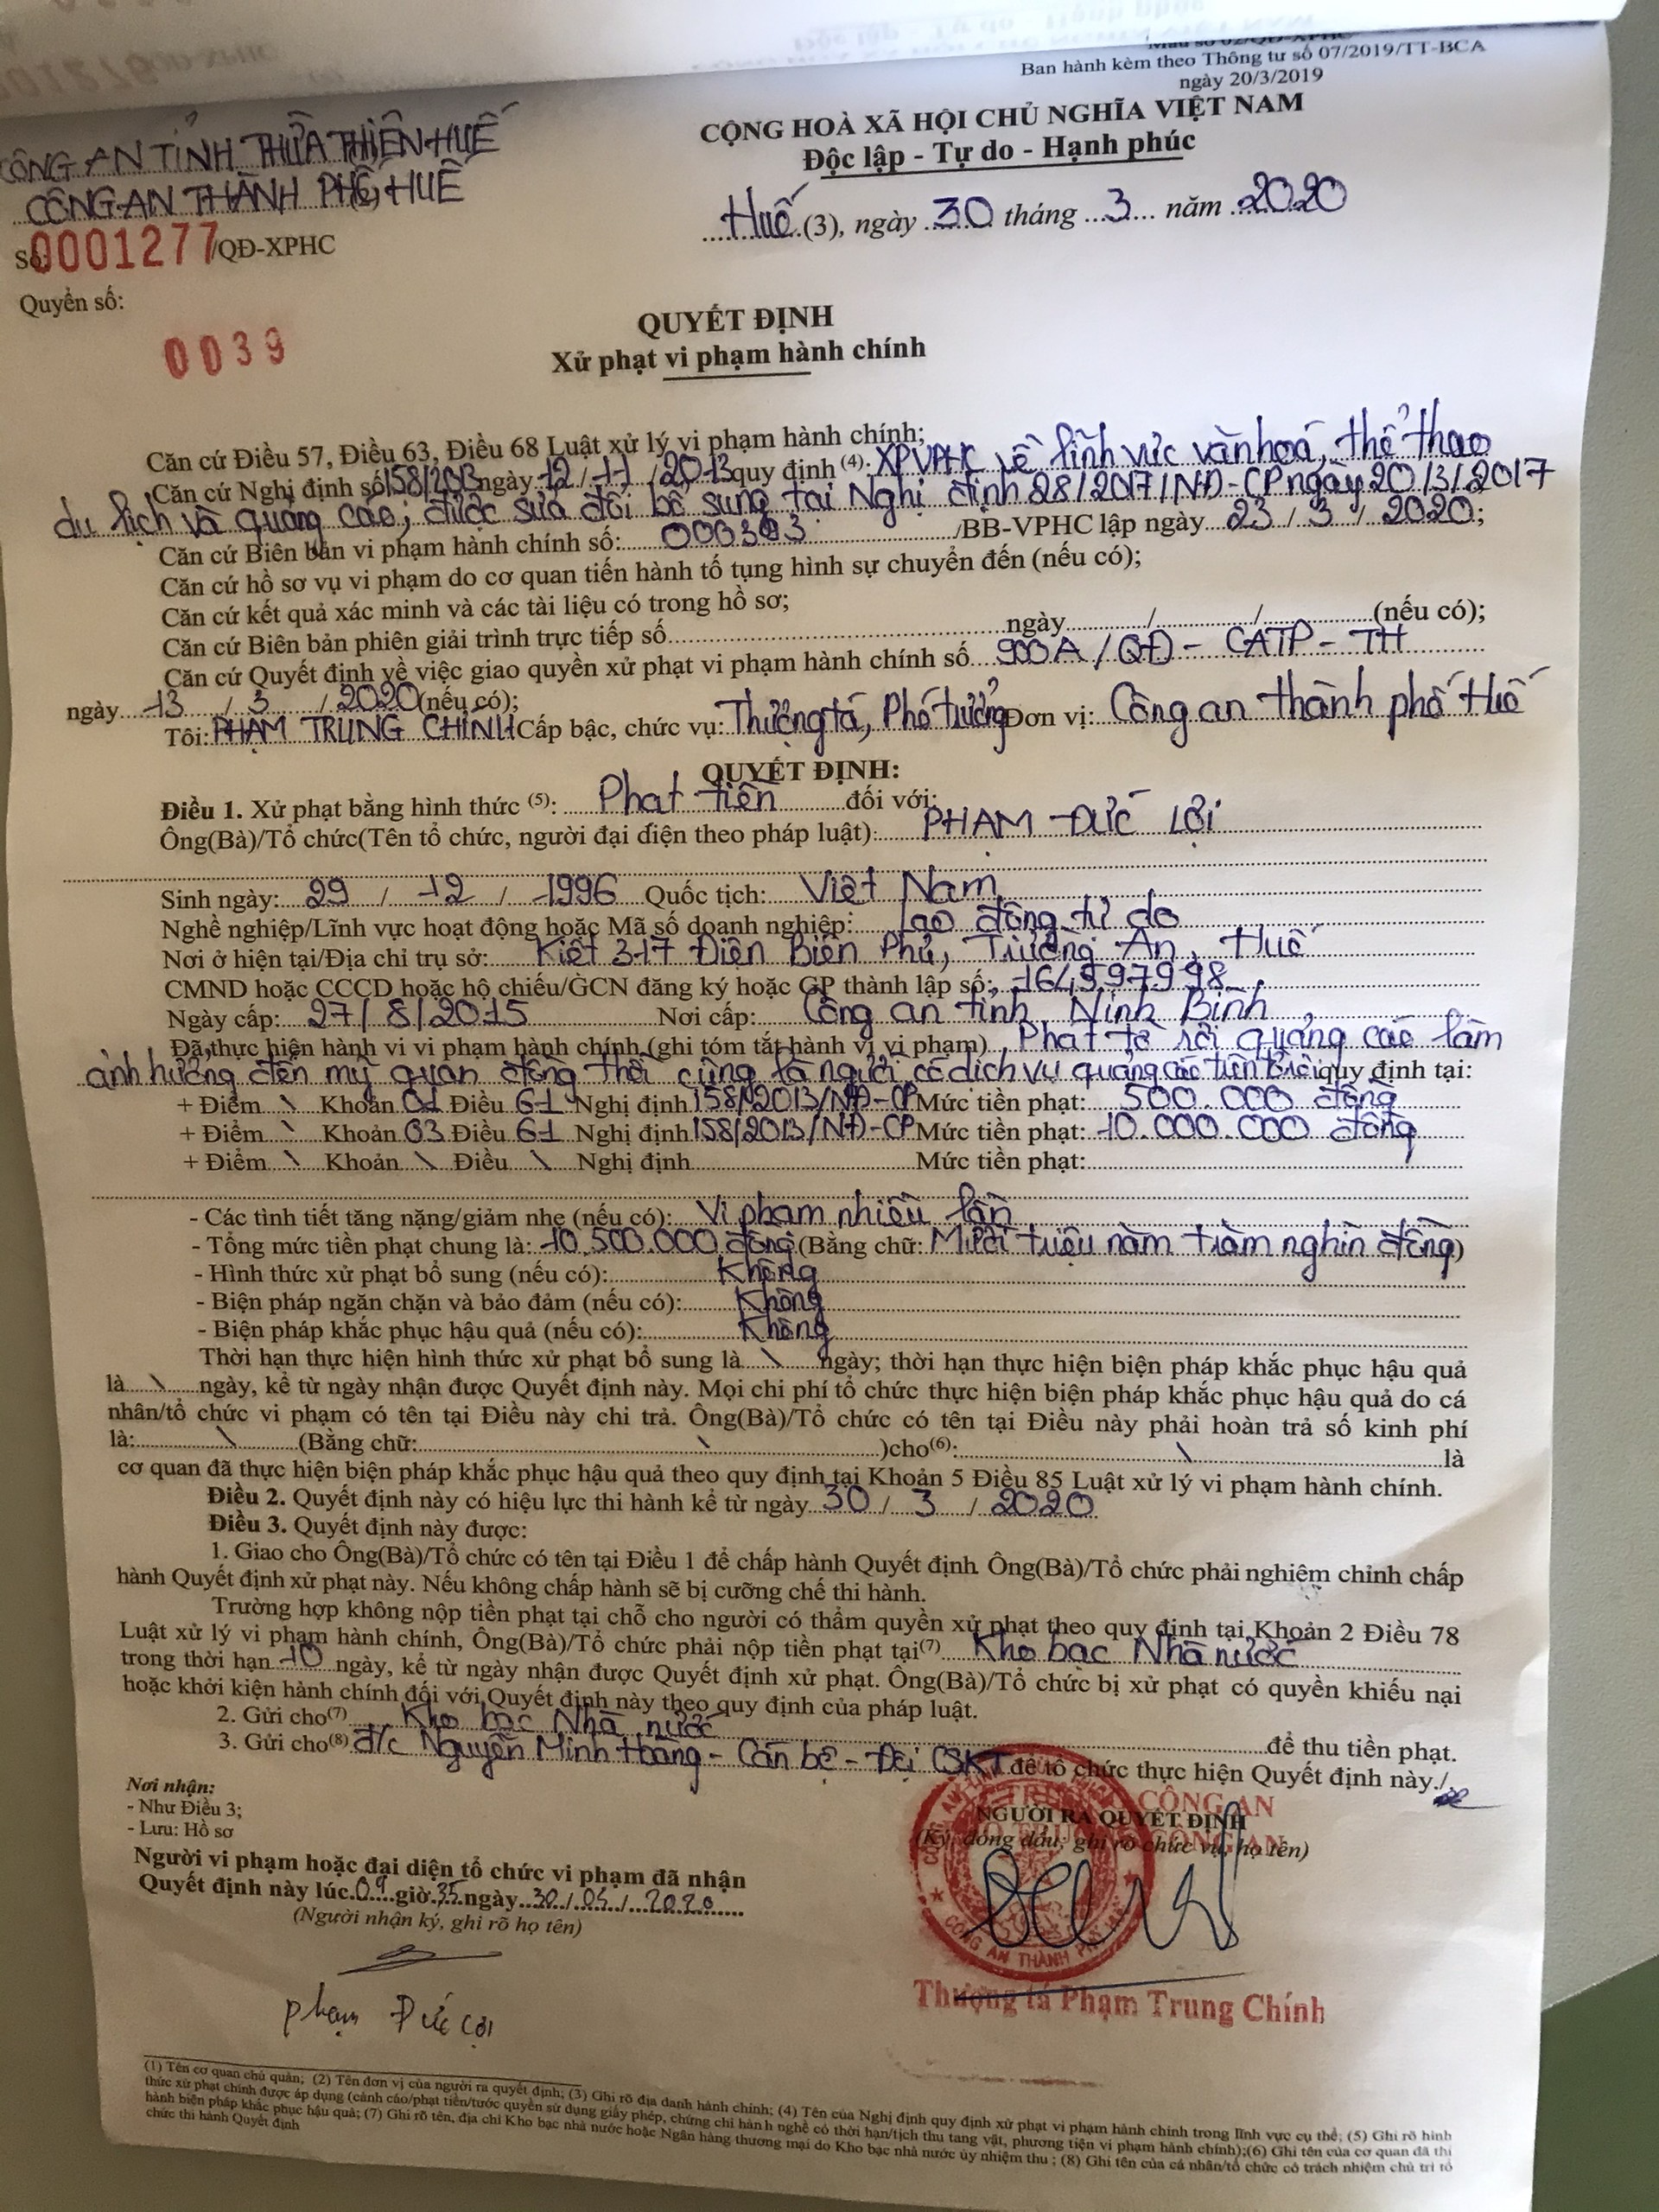 Mẫu số 02/QĐ-XPHC
Ban hành kèm theo Thông tư số 07/2019/TT-BCA
ngày 20/3/2019
CÔNG AN TỈNH THỪA THIÊN HUẾ
CÔNG AN THÀNH PHỐ HUẾ
CỘNG HOÀ XÃ HỘI CHỦ NGHĨA VIỆT NAM
Độc lập - Tự do - Hạnh phúc
Huế (3), ngày 30 tháng 3 năm 2020
Số: 0001277/QĐ-XPHC
Quyển số:
0039
QUYẾT ĐỊNH
Xử phạt vi phạm hành chính
Căn cứ Điều 57, Điều 63, Điều 68 Luật xử lý vi phạm hành chính;
Căn cứ Nghị định số 158/2013 ngày 12/11/2013 quy định (4): XPVPHC về lĩnh vực văn hoá, thể thao
du lịch và quảng cáo; được sửa đổi bổ sung tại Nghị định 28/2017/NĐ-CP ngày 20/3/2017
Căn cứ Biên bản vi phạm hành chính số: /BB-VPHC lập ngày 23/3/2020;
Căn cứ hồ sơ vụ vi phạm do cơ quan tiến hành tố tụng hình sự chuyển đến (nếu có);
Căn cứ kết quả xác minh và các tài liệu có trong hồ sơ;
Căn cứ Biên bản phiên giải trình trực tiếp số.......... ngày....../....../......(nếu có);
Căn cứ Quyết định về việc giao quyền xử phạt vi phạm hành chính số 900A/QĐ-CATP-TH
ngày 13/3/2020 (nếu có);
Tôi: PHẠM TRUNG CHÍNH Cấp bậc, chức vụ: Thượng tá, Phó trưởng Đơn vị: Công an thành phố Huế
QUYẾT ĐỊNH:
Điều 1. Xử phạt bằng hình thức (5): Phạt tiền đối với:
Ông(Bà)/Tổ chức(Tên tổ chức, người đại diện theo pháp luật): PHẠM ĐỨC LỢI
Sinh ngày: 29/12/1996 Quốc tịch: Việt Nam
Nghề nghiệp/Lĩnh vực hoạt động hoặc Mã số doanh nghiệp: Lao động tự do
Nơi ở hiện tại/Địa chỉ trụ sở: Kiệt 317 Điện Biên Phủ, Trường An, Huế
CMND hoặc CCCD hoặc hộ chiếu/GCN đăng ký hoặc GP thành lập số: 164597998
Ngày cấp: 27/8/2015 Nơi cấp: Công an tỉnh Ninh Bình
Đã thực hiện hành vi vi phạm hành chính (ghi tóm tắt hành vi vi phạm) Phát tờ rơi quảng cáo làm
ảnh hưởng đến mỹ quan đồng thời cũng là người có dịch vụ quảng cáo trên quy định tại:
+ Điểm \ Khoản 01 Điều 61 Nghị định 158/2013/NĐ-CP Mức tiền phạt: 500.000 đồng
+ Điểm \ Khoản 03 Điều 61 Nghị định 158/2013/NĐ-CP Mức tiền phạt: 10.000.000 đồng
+ Điểm \ Khoản \ Điều \ Nghị định.......... Mức tiền phạt:..........
- Các tình tiết tăng nặng/giảm nhẹ (nếu có): Vi phạm nhiều lần
- Tổng mức tiền phạt chung là: 10.500.000 đồng (Bằng chữ: Mười triệu năm trăm nghìn đồng)
- Hình thức xử phạt bổ sung (nếu có): Không
- Biện pháp ngăn chặn và bảo đảm (nếu có): Không
- Biện pháp khắc phục hậu quả (nếu có): Không
Thời hạn thực hiện hình thức xử phạt bổ sung là \ ngày; thời hạn thực hiện biện pháp khắc phục hậu quả
là \ ngày, kể từ ngày nhận được Quyết định này. Mọi chi phí tổ chức thực hiện biện pháp khắc phục hậu quả do cá
nhân/tổ chức vi phạm có tên tại Điều này chi trả. Ông(Bà)/Tổ chức có tên tại Điều này phải hoàn trả số kinh phí
là: \ (Bằng chữ: \ )cho(6): \ là
cơ quan đã thực hiện biện pháp khắc phục hậu quả theo quy định tại Khoản 5 Điều 85 Luật xử lý vi phạm hành chính.
Điều 2. Quyết định này có hiệu lực thi hành kể từ ngày 30/3/2020
Điều 3. Quyết định này được:
1. Giao cho Ông(Bà)/Tổ chức có tên tại Điều 1 để chấp hành Quyết định Ông(Bà)/Tổ chức phải nghiêm chỉnh chấp
hành Quyết định xử phạt này. Nếu không chấp hành sẽ bị cưỡng chế thi hành.
Trường hợp không nộp tiền phạt tại chỗ cho người có thẩm quyền xử phạt theo quy định tại Khoản 2 Điều 78
Luật xử lý vi phạm hành chính, Ông(Bà)/Tổ chức phải nộp tiền phạt tại(7) Kho bạc Nhà nước
trong thời hạn 10 ngày, kể từ ngày nhận được Quyết định xử phạt. Ông(Bà)/Tổ chức bị xử phạt có quyền khiếu nại
hoặc khởi kiện hành chính đối với Quyết định này theo quy định của pháp luật.
2. Gửi cho(7) Kho bạc Nhà nước để thu tiền phạt.
3. Gửi cho(8) đ/c Nguyễn Minh Hoàng - Cán bộ - Đội CSKT để tổ chức thực hiện Quyết định này./.
Nơi nhận:
- Như Điều 3;
- Lưu: Hồ sơ
NGƯỜI RA QUYẾT ĐỊNH
(Ký, đóng dấu; ghi rõ chức vụ, họ tên)
Người vi phạm hoặc đại diện tổ chức vi phạm đã nhận
Quyết định này lúc 09 giờ 35 ngày 30/03/2020
(Người nhận ký, ghi rõ họ tên)
CÔNG AN THÀNH PHỐ
Thượng tá Phạm Trung Chính
Phạm Đức Lợi
(1) Tên cơ quan chủ quản; (2) Tên đơn vị của người ra quyết định; (3) Ghi rõ địa danh hành chính; (4) Tên của Nghị định quy định xử phạt vi phạm hành chính trong lĩnh vực cụ thể; (5) Ghi rõ hình
thức xử phạt chính được áp dụng (cảnh cáo/phạt tiền/tước quyền sử dụng giấy phép, chứng chỉ hành nghề có thời hạn/tịch thu tang vật, phương tiện vi phạm hành chính);(6) Ghi tên của cơ quan đã thi
hành biện pháp khắc phục hậu quả; (7) Ghi rõ tên, địa chỉ Kho bạc nhà nước hoặc Ngân hàng thương mại do Kho bạc nhà nước ủy nhiệm thu ; (8) Ghi tên của cá nhân/tổ chức có trách nhiệm chủ trì tổ
chức thi hành Quyết định